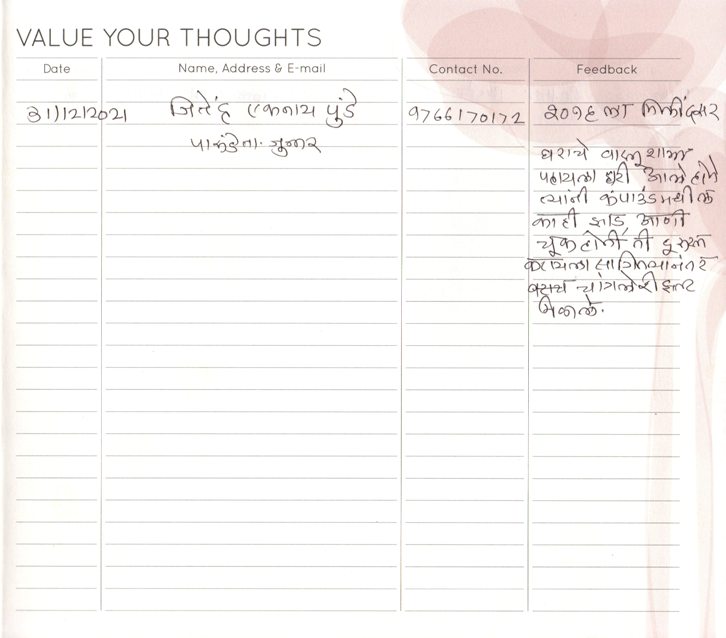 VALUE YOUR THOUGHTS
Date Name, Address & E-mail Contact No. Feedback
31/12/2021 जितेंद्र एकनाथ पुंडे 9766170172 २०१६ ला मिलींद सर
पारुंडे ता. जुन्नर घराचे वास्तूशास्त्र
पहायला घरी आले होते
त्यांनी कंपाउंड मधील
काही झाडे आणी
चूक होती ती दुरुस्त
करायला सांगितल्यानंतर
बरेच चांगले रिझल्ट
मिळाले.